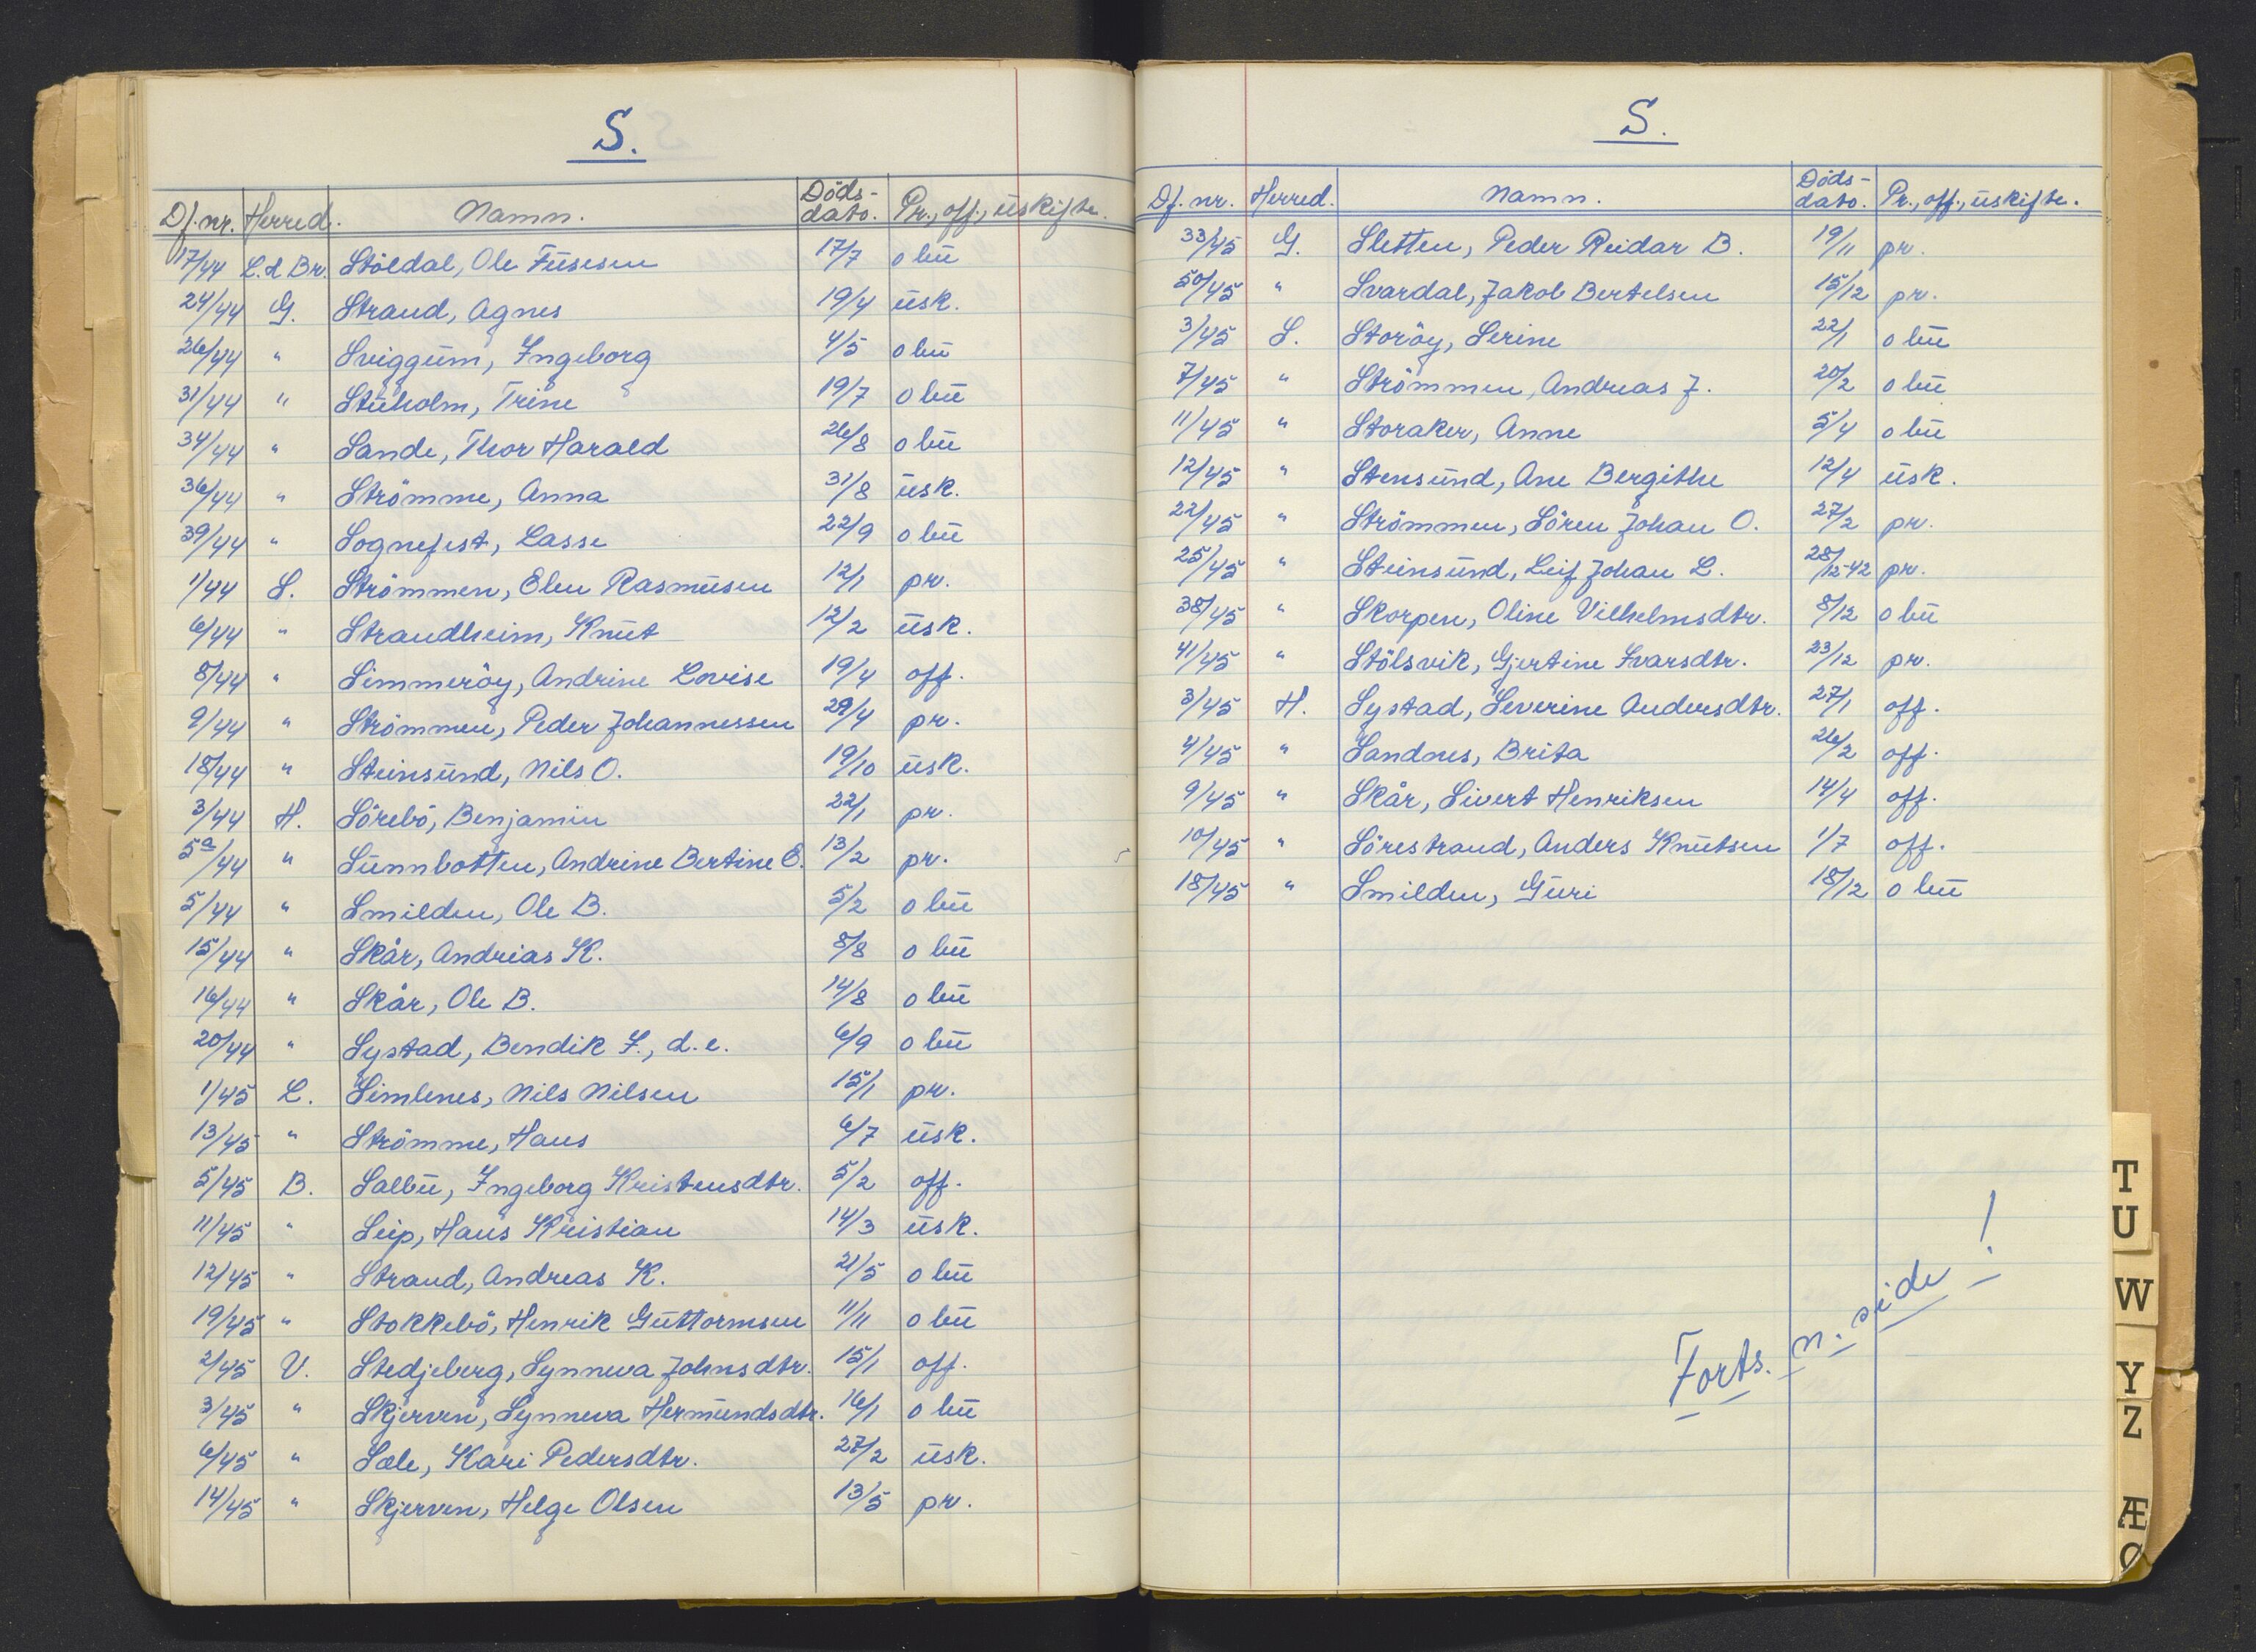 S.
Df.nr. Herred. Namn. Döds-dato. Pr., off., uskifte.
17/44 L. d Br. Støldal, Ole Fusesen 17/7 o bu
24/44 G. Strand, Agnes 19/4 usk.
26/44 " Sviggum, Ingeborg 4/5 o bu
31/44 " Stuholm, Trine 19/7 o bu
34/44 " Sande, Thor Harald 26/8 o bu
36/44 " Strömme, Anna 31/8 usk.
39/44 " Sognefest, Lasse 22/9 o bu
1/44 S. Strömmen, Elen Rasmusen 12/1 pr.
6/44 " Strandheim, Knut 12/2 usk.
8/44 " Simmeröy, Andrine Lovise 19/4 off.
9/44 " Strömmen, Peder Johannessen 29/4 pr.
18/44 " Steinsund, Nils O. 19/10 usk.
3/44 H. Sörebö, Benjamin 22/1 pr.
5a/44 " Sunnbotten, Andrine Bertine E. 13/2 pr.
5/44 " Smilden, Ole B. 5/2 o bu
15/44 " Skår, Andrias K. 8/8 o bu
16/44 " Skår, Ole B. 14/8 o bu
20/44 " Systad, Bendik I., d.e. 6/9 o bu
1/45 L. Simlenes, Nils Nilsen 15/1 pr.
13/45 " Strömme, Hans 6/7 usk.
5/45 B. Salbu, Ingeborg Kristensdtr. 5/2 off.
11/45 " Seip, Hans Kristian 14/3 usk.
12/45 " Strand, Andreas K. 21/5 o bu
19/45 " Stokkebö, Henrik Guttormsen 11/11 o bu
2/45 V. Stedjeberg, Synneva Johnsdtr. 15/1 off.
3/45 " Skjerven, Synneva Hermundsdtr. 16/1 o bu
6/45 " Sæle, Kari Pedersdtr. 27/2 usk.
14/45 " Skjerven, Helge Olsen 13/5 pr.
S.
Df. nr. Herred. Namn. Döds-dato. Pr., off., uskifte.
33/45 G. Sletten, Peder Reidar B. 19/11 pr.
50/45 " Svardal, Jakob Bertelsen 15/12 pr.
3/45 S. Storöy, Serine 22/1 o bu
7/45 " Strömmen, Andreas J. 20/2 o bu
11/45 " Storaker, Anne 5/4 o bu
12/45 " Stensund, Ane Bergithe 12/4 usk.
22/45 " Strömmen, Sören Johan O. 27/2 pr.
25/45 " Steinsund, Leif Johan L. 28/12-42 pr.
38/45 " Skorpen, Oline Vilhelmsdtr. 8/12 o bu
41/45 " Stölsvik, Gjertine Ivarsdtr. 23/12 pr.
3/45 H. Systad, Severine Andersdtr. 27/1 off.
4/45 " Sandnes, Brita 26/2 off.
9/45 " Skår, Sivert Henriksen 14/4 off.
10/45 " Sörestrand, Anders Knutsen 1/7 off.
18/45 " Smilden, Guri 18/12 o bu
Forts. n. side!
T
U
W
Y
Z
Æ